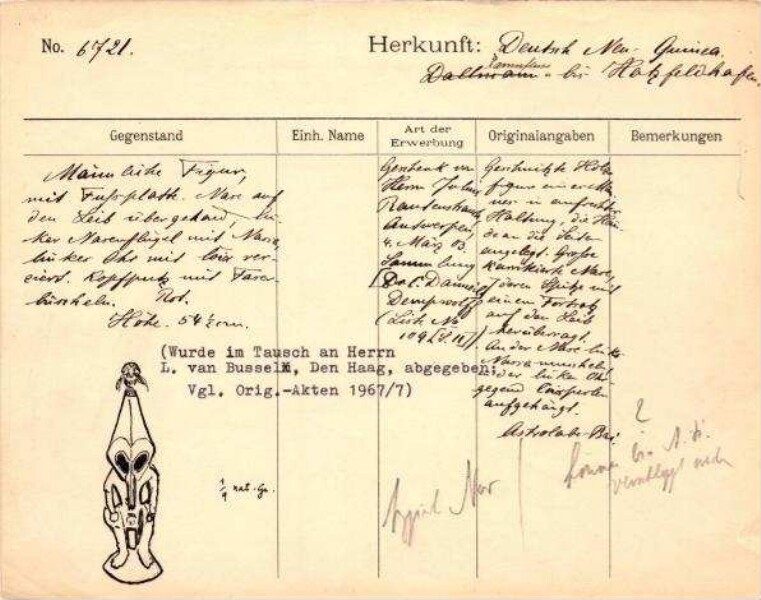 No. 6721.
Herkunft: Deutsch Neu-Guinea.
Dallmann bis Hatzfeldhafen.
Gegenstand
Einh. Name
Art der Erwerbung
Originalangaben
Bemerkungen
Männliche Figur,
mit Fussplatte. Nase auf
den Leib übergehend, lin-
ker Nasenflügel mit Nassa
linker Ohr mit Coix ver-
ziert. Kopfputz mit Faser-
büscheln. Rot.
Höhe. 54½ cm.
Geschenk von
Herrn
Rautenstrauch
Antwerpen,
4. März 03.
Sammlung
Dempwolff
(Liste No
109
Geschnitzte Holz-
figur eines Man-
nes in aufrechter
Haltung, die Hän-
de an die Seiten
angelegt. Grosse
karrikierte Nase,
deren Spitze mit
einem Fortsatz
auf den Leib
herüberragt.
An der Nase links
Nassamuscheln,
der linken Ohr-
gegend Coixperlen
aufgehängt.
Astrolabe-Bai.
(Wurde im Tausch an Herrn
L. van Bussel, Den Haag, abgegeben;
Vgl. Orig.-Akten 1967/7)
?